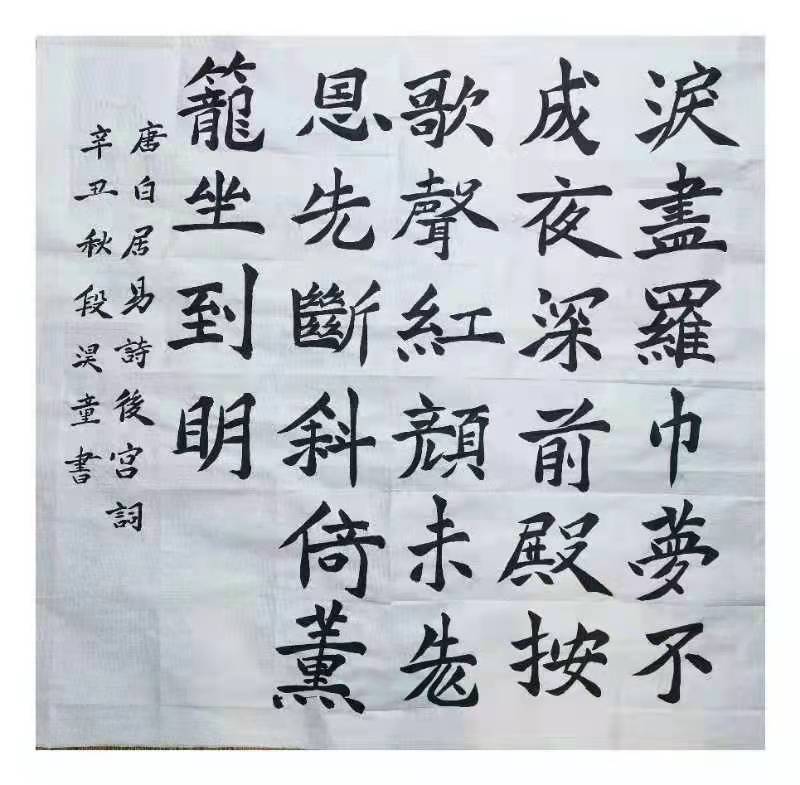 淚盡羅巾夢不
成夜深前殿按
歌聲紅顔未老
恩先斷斜倚薰
籠坐到明
唐白居易詩後宮詞
辛丑秋段淏童書